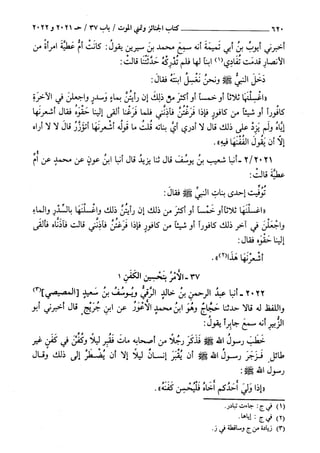 ٦٢٠ كتاب الجنائز وتمني الموت/ باب ٣٧/ حـ ٢٠٢١ و ٢٠٢٢
أخبرني أيوبُ بنُ أبي تميمةَ أنه سمع محمد بن سيرين يقول: كانَت أُم عَطِيَّة امرأةً من
الأنصارِ قدمَت تُفادِي(١) ابناً لها فلم تُدرِكْهُ حَدَّثَتْنَا قالت:
دَخَلَ النبيُّ ﷺ ونحنُ نَغسِلُ ابنتَهُ فقال:
«اغْسِلْنَهَا ثلاثاً أو خمساً أو أكثرَ مع ذلك إن رأيتُنَّ بماءٍ وسِدرٍ واجعلنَ في الآخرةِ
كافوراً أو شيئاً من كافورٍ فإذا فَرَغْتُنَّ فآذِنَّنِي فلما فرغنا ألقى إلينا حَقْوَهُ فقال أَشعِرْنَها
إيَّاهُ ولم يَزِدْ على ذلك قال لا أدري أيُّ بناتِه قُلتُ ما قولُه أشعرنَها أتؤزَّرُ قال لا لا أراه
إلا أن يقولَ الفُفْنَها فيه».
٢/٢٠٢١ - أنبا شعيب بنُ يوسفَ قال ثنا يزيدُ قال أنبا ابنُ عونٍ عن محمدٍ عن أُم
عطيةَ قالت:
تُوفِّيَت إحدى بناتِ النبيِّ ﷺ فقال:
«اغسلنَهَا ثلاثاً أو خَمْساً أو أكثرَ من ذلك إن رأيتُنَّ ذلك واغسِلْنَهَا بالسِّدرِ والماءِ
واجعَلْنَ في آخرِ ذلك كافوراً أو شيئاً من كافورٍ فإذا فَرَغْتُنَّ فآذِنَّنِي قالت فآذَنَّاه فألقَى
إلينا حَقْوَه فقال:
أشعِرْنَها هَذَا(٢)».
٣٧- الأمْرُ بتَحْسِينِ الكَفَنِ ١
٢٠٢٢ - أنبا عبدُ الرحمنِ بنُ خالدٍ الرَّقِّيُّ ويُوسُفُ بنُ سَعِيدٍ [المصيصي](٣)
واللفظ له قالا حدثنا حَجَّاجٌ وهوَ ابنُ محمدٍ الأعْوَرُ عن ابنِ جُريجٍ قال أخبرني أبو
الزُّبيرِ أنه سمعَ جابراً يقولُ:
خَطَبَ رسولُ اللهِ ﷺ فذَكَرَ رجُلاً من أصحابِهِ ماتَ فقُبِرَ ليلاً وكُفِّنَ في كفَنٍ غيرِ
طائلٍ فزَجَرَ رسولُ اللهِ ﷺ أن يُقْبَرَ إنسانٌ ليلاً إلا أن يُضْطَرَّ إلى ذلك وقال
رسول الله ﷺ:
«إذا ولِيَ أحدُكم أخَاهُ فَلْيُحسِن كفَنَهُ».
(١) في ج: جاءت تبادر.
(٢) في ج: إياها.
(٣) زيادة من ج وساقطة في ز.